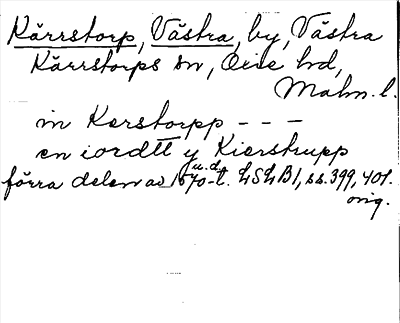 Kärrstorp, Västra, by, Västra
Kärrstorps sn, Oxie hd,
Malm. l.
in Kerstorpp - - -
en iordtt y Kierstrupp
u. d.
förra delen av 1570-t. LSLB1, ss. 399, 401.
orig.